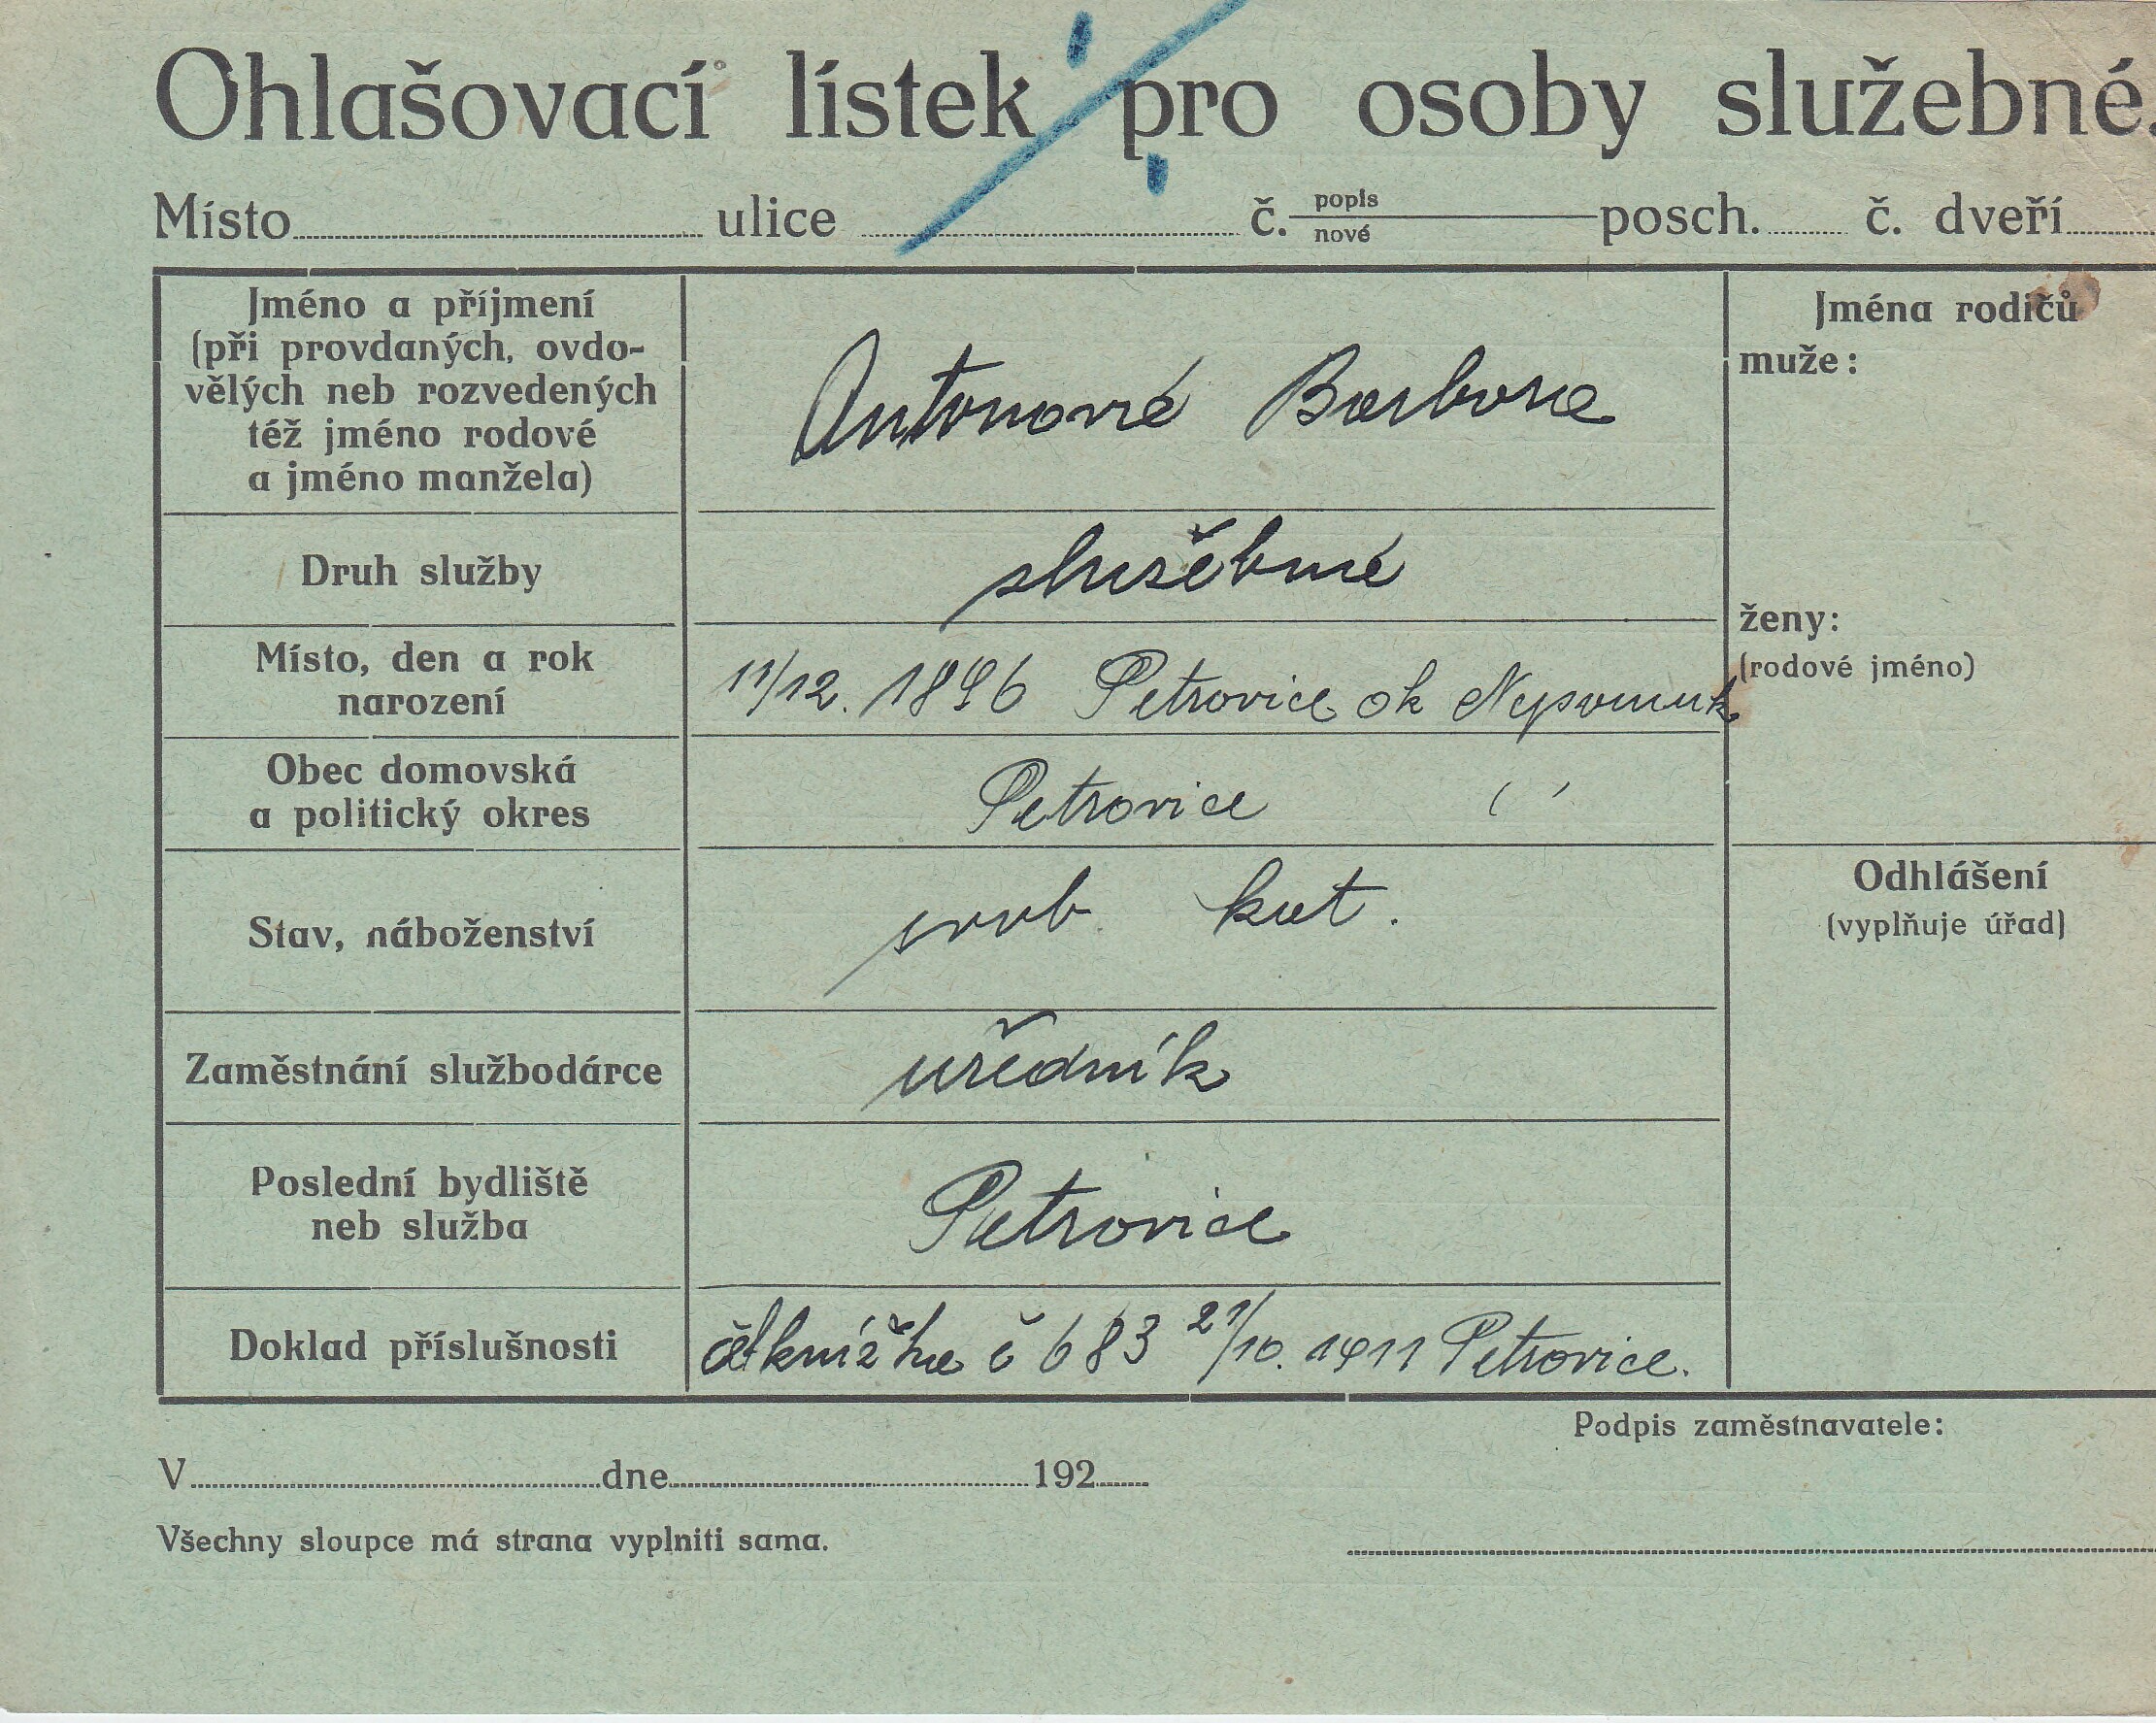 Ohlašovací lístek pro osoby služebné.
Místo ulice č. popis nové posch. č. dveří
Jméno a příjmení
(při provdaných, ovdo-
vělých neb rozvedených
též jméno rodové
a jméno manžela)
Antonová Barbora
Jména rodičů
muže:
Druh služby
služebná
ženy:
(rodové jméno)
Místo, den a rok
narození
11/12. 1896 Petrovice ok Nepomuk
Obec domovská
a politický okres
Petrovice "
Stav, náboženství
svob kat.
Odhlášení
(vyplňuje úřad)
Zaměstnání službodárce
uředník
Poslední bydliště
neb služba
Petrovice
Doklad příslušnosti
čel knížka č 683 21/10. 1911 Petrovice.
Podpis zaměstnavatele:
V dne 192
Všechny sloupce má strana vyplniti sama.